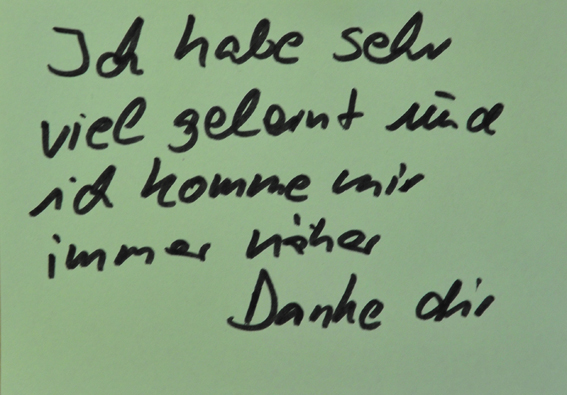 Ich habe sehr
viel gelernt und
ich komme mir
immer näher
Danke dir